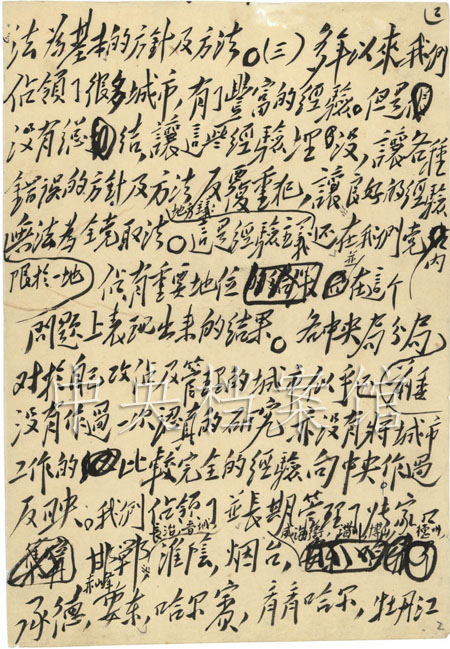 2
法为基本的方針及方法。(三)多年以来我們
佔領了很多城市,有了豐富的經驗。但是
没有總結,讓這些經驗埋没,讓各種
錯誤的方針及方法反覆重犯,讓良好的經驗
地方主義
無法為全党取法。這是經驗主義还在我們党内
限於一地 佔有重要地位並在這个
問題上表现出来的结果。各中央局分局
对於自己攻佔及管理的城市以乎
没有作過一次認真的研究亦没有將城市
工作的比較完全的經驗向中央作過
反映。我們佔領了並長期管理了张家口
長治,晋城 威海衛,淄川,博山
邯鄲,淮陰,烟台,
赤峰
承德,安东,哈尔賓,齊齊哈尔,牡丹江
2
中央档案馆